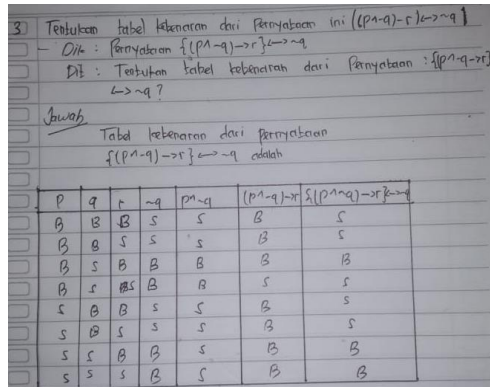 3 Tentukan tabel kebenaran dari Pernyataan ini ((p^~q)->r)<->~q)
- Dik : Pernyataan {(p^~q)->r}<->~q
Dit : Tentukan tabel kebenaran dari Pernyataan : {(p^~q->r}
<->~q ?
Jawab
Tabel kebenaran dari pernyataan
{(p^~q)->r}<->~q adalah
P q r ~q p^~q (p^~q)->r {(p^~q)->r}<->~q
B B B S S B S
B B S S S B S
B S B B B B B
B S S B B S S
S B B S S B S
S B S S S B S
S S B B S B B
S S S B S B B